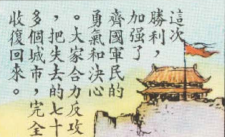 這次
勝利，
加强了
齊國軍民的
勇氣和决心
。大家合力反攻
，把失去的七十
多個城市，完全
收復回來。